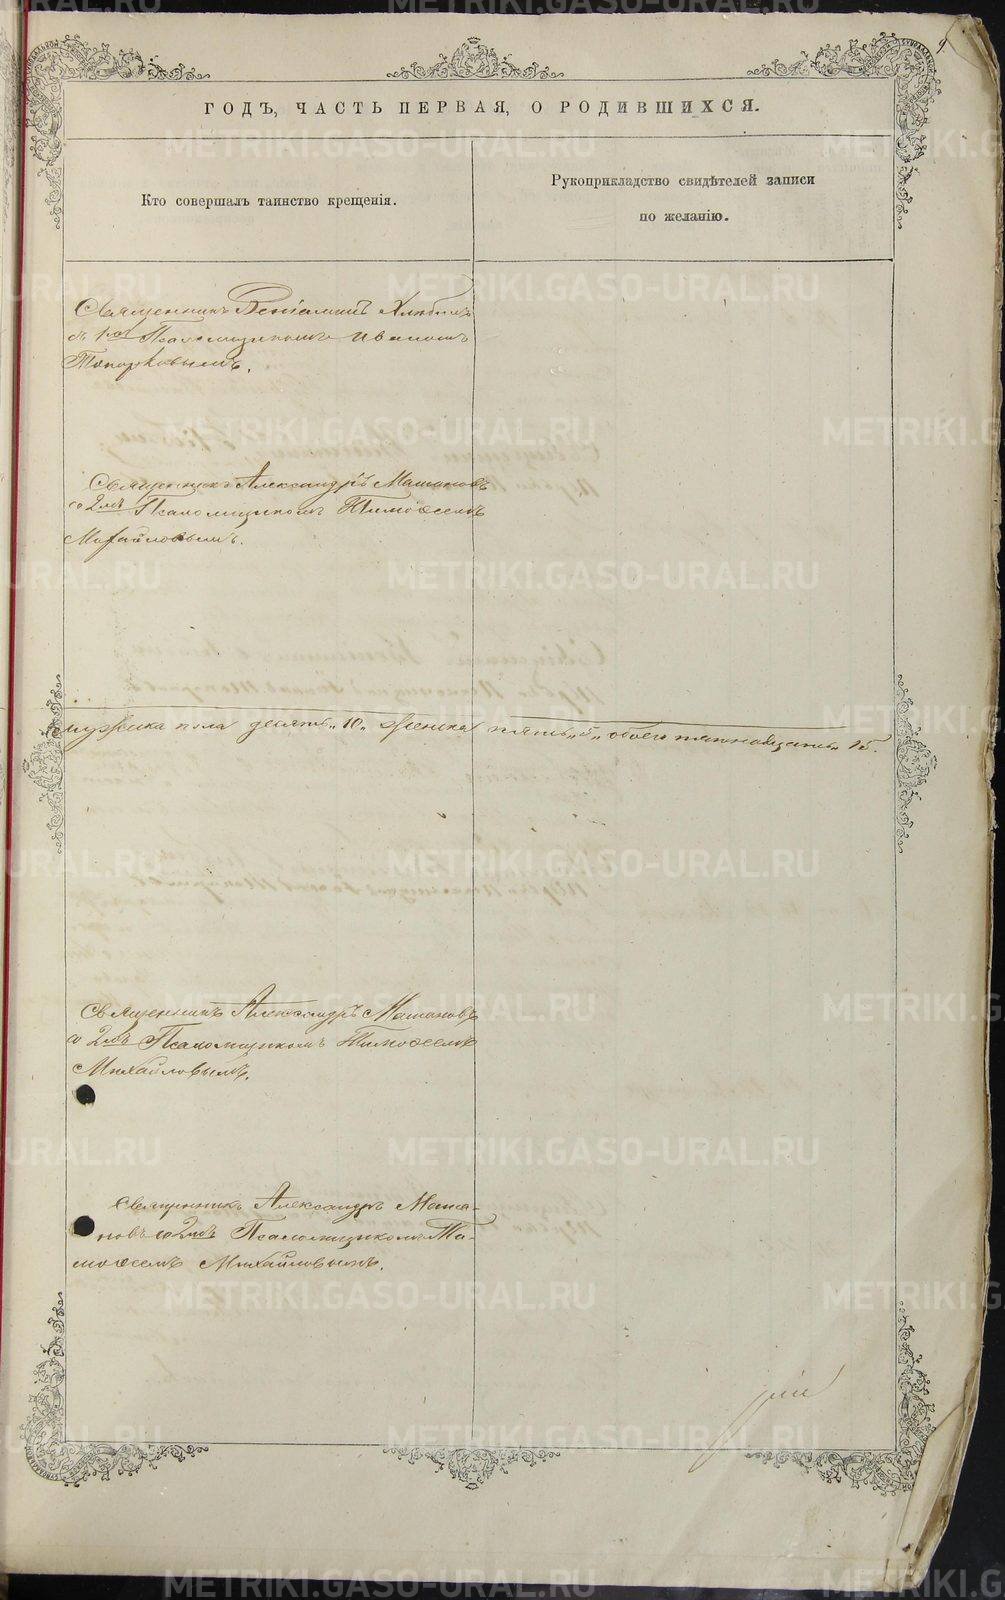 9
ГОДЪ, ЧАСТЬ ПЕРВАЯ, О РОДИВШИХСЯ.
Кто совершалъ таинство крещенія.
Рукоприкладство свидѣтелей записи
по желанію.
Священникъ Веніаминъ
съ 1мъ Псаломщикомъ Иваномъ
Топорковымъ.
Священникъ Александръ Машановъ
со 2мъ Псаломщикомъ Тимоѳеемъ
Михайловымъ.
мужеска пола десять „10„ женска пять „5„ обоего пятнадцать „15.
Священникъ Александръ Машановъ
со 2мъ Псаломщикомъ Тимоѳеемъ
Михайловымъ.
Священникъ Александръ Маша-
новъ со 2мъ Псаломщикомъ Ти-
моѳеемъ Михайловымъ.
METRIKI.GASO-URAL.RU